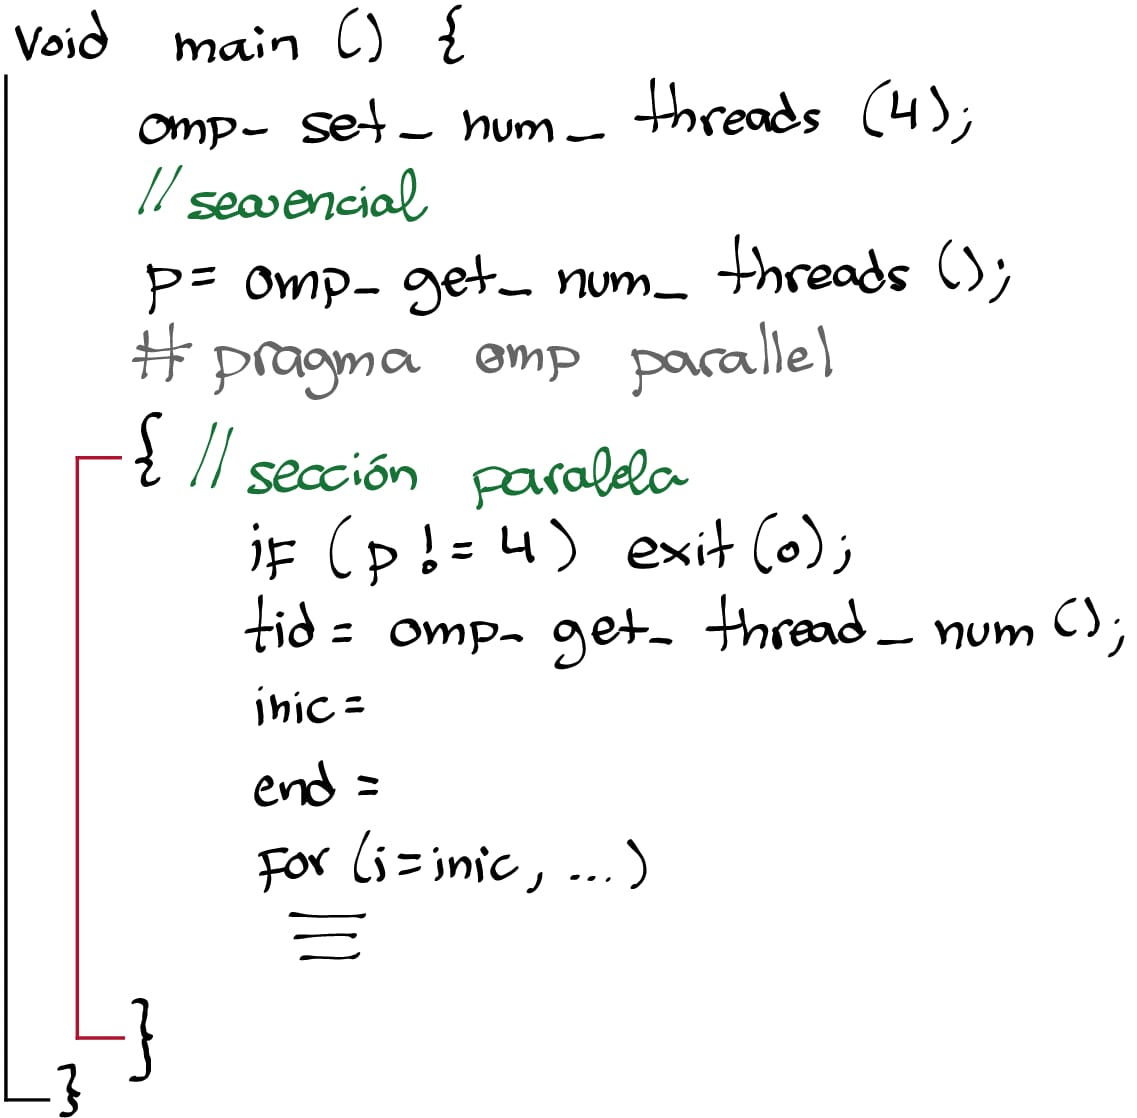 void main () {
omp_ set_ num_ threads (4);
// secuencial
p= omp_ get_ num_ threads ();
# pragma omp parallel
{ // sección paralela
if (p != 4) exit(0);
tid = omp_ get_ thread_ num ();
inic =
end =
For (i=inic, ...)
}
}